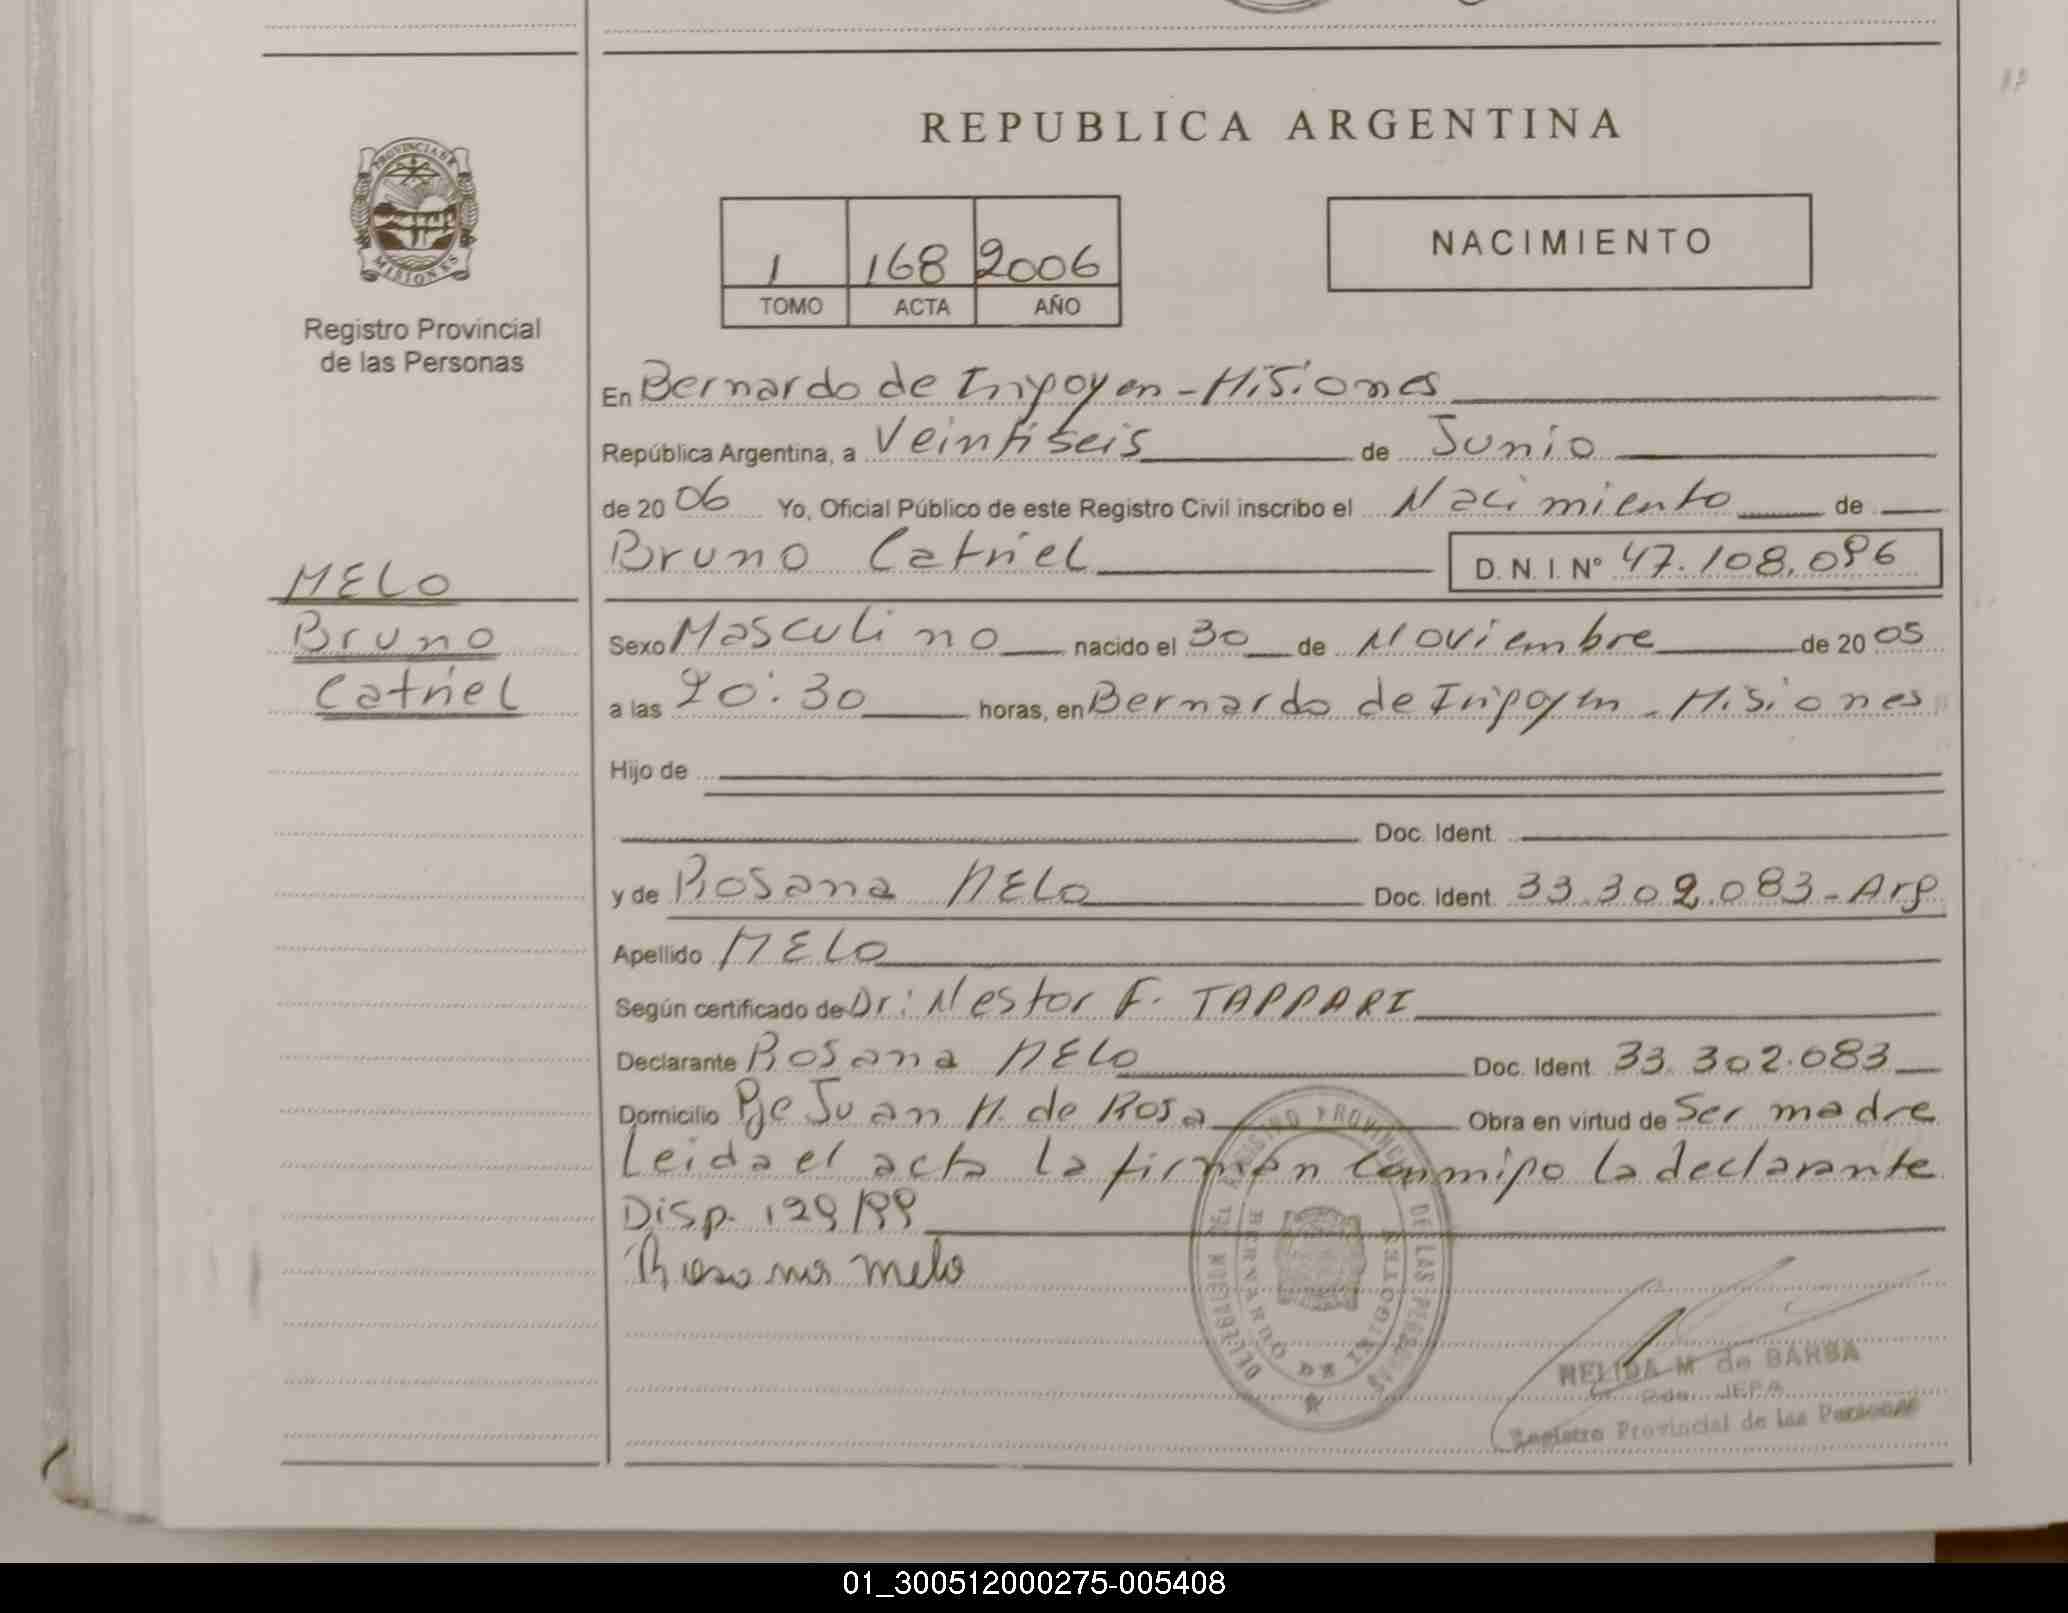 REPUBLICA ARGENTINA
PROVINCIA DE
MISIONES
Registro Provincial
de las Personas
1 168 2006
TOMO ACTA AÑO
NACIMIENTO
En Bernardo de Irigoyen - Misiones
República Argentina, a Veintiseis de Junio
de 2006 Yo, Oficial Público de este Registro Civil inscribo el Nacimiento de
Bruno Catriel D.N.I. Nº 47.108.096
MELO
Bruno
Catriel
Sexo Masculino nacido el 30 de Noviembre de 2005
a las 20:30 horas, en Bernardo de Irigoyen - Misiones
Hijo de
Doc. Ident.
y de Rosana MELO Doc. Ident. 33.302.083 - Arg
Apellido MELO
Según certificado de Dr: Nestor F. TAPPARI
Declarante Rosana MELO Doc. Ident. 33.302.083
Domicilio Pje Juan M. de Rosa Obra en virtud de Ser madre
Leida el acta la firman conmigo la declarante
Disp. 129/99
Rosana melo
REGISTRO PROVINCIAL DE LAS PERSONAS
DELEGACION
BERNARDO DE IRIGOYEN
NELIDA M de BARBA
Registro Provincial de las Personas
01_300512000275-005408